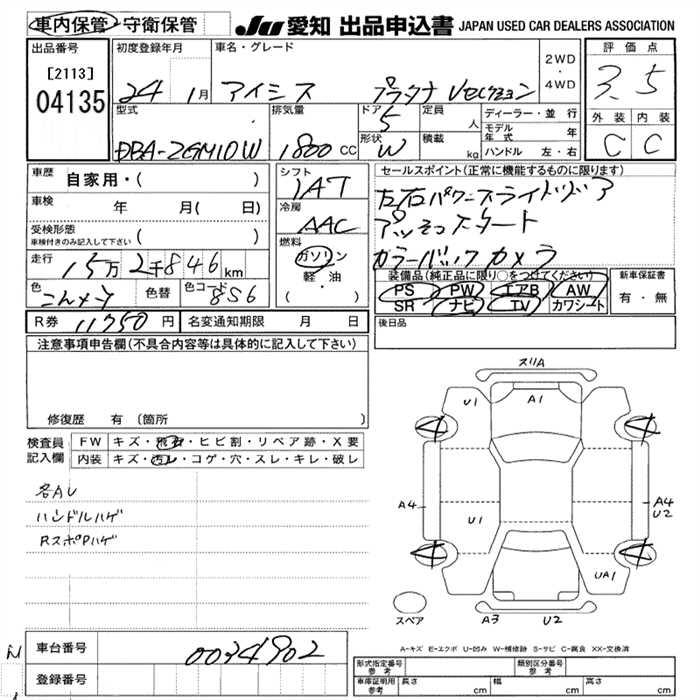 車内保管・守衛保管 JU 愛知 出品申込書 JAPAN USED CAR DEALERS ASSOCIATION
出品番号 初度登録年月 車名・グレード 2WD・4WD 評価点
[2113]
04135 24 1月 アイシス プラタナ Vセレクション 3.5
型式 排気量 ドア 定員 ディーラー・並行 外装 内装
5 人 モデル年式 年
DBA-ZGM10W 1800 cc 形状 W 積載 kg ハンドル 左・右 C C
車歴 自家用・( ) シフト 1AT セールスポイント(正常に機能するものに限ります)
車検 年 月(日) 冷房 AAC 左右パワースライドドア
受検形態 車検付きのみ記入して下さい ( ) 燃料 プッシュスタート
走行 15万2千846km ガソリン カラーバックカメラ
軽・油
( )
装備品(純正品に限り○をつけてください) 新車保証書
色 こんメタ 色替 色コード 8S6 PS PW エアB AW 有・無
SR ナビ TV カワシート
R券 11350円 名変通知期限 月 日 後日品
注意事項申告欄(不具合内容等は具体的に記入して下さい)
修復歴 有(箇所 )
検査員記入欄 FW キズ・飛石・ヒビ割・リペア跡・X要
内装 キズ・汚レ・コゲ・穴・スレ・キレ・破レ
各AU
ハンドルハゲ
RスポPハゲ
スリA
U1 A1
A4 U1 A4
U2
UA1
スペア A3 U2
A-キズ E-エクボ U-凹み W-補修跡 S-サビ C-腐食 XX-交換済
車台番号 0034902
登録番号
形式指定番号 参考 類別区分番号 参考
車庫証明用 参考 長さ cm 幅 cm 高さ cm